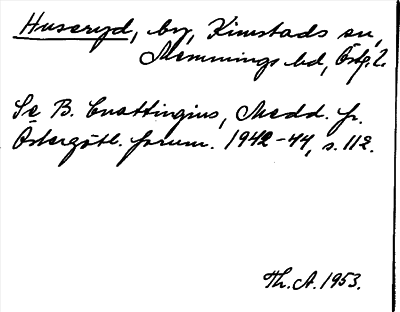 Huseryd, by, Kimstads sn,
Memmings hd, Östg. l.
Se B. Cnattingius, Medd. fr.
Östergötl. fornm. 1942-44, s. 112.
Th. A. 1953.